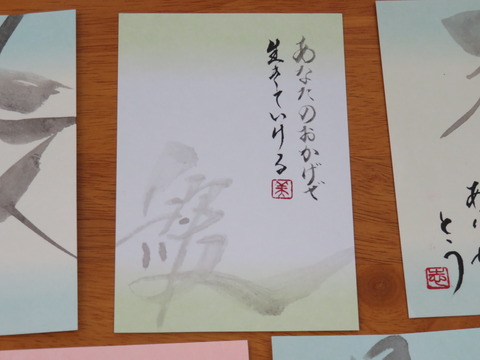 あなたのおかげで
生きていける
美
愛
あり
とう
志